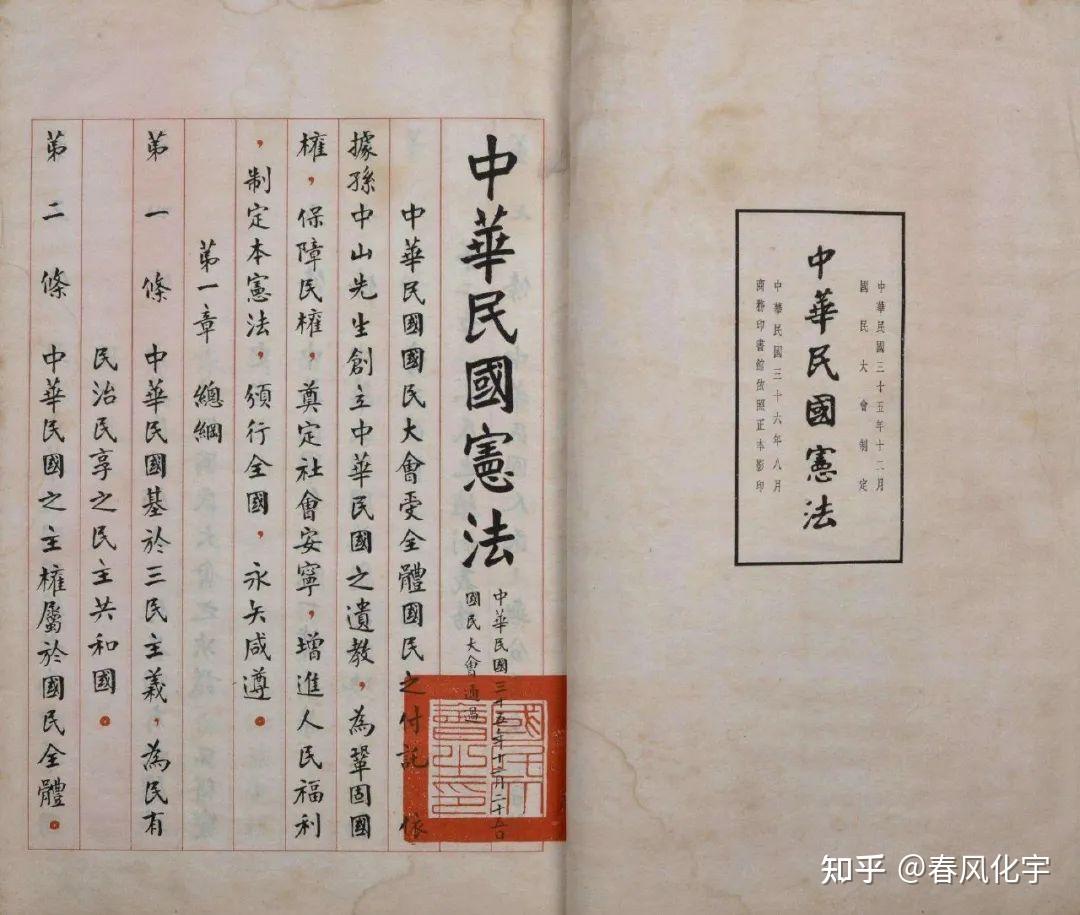 中華民國三十五年十二月
國民大會制定
中華民國憲法
中華民國三十六年八月
商務印書館照正本影印
中華民國憲法
中華民國三十五年十二月二十五日
國民大會通過
國民大
會之印
中華民國國民大會受全體國民之付託 依
據孫中山先生創立中華民國之遺教,為鞏固國
權,保障民權,奠定社會安寧,增進人民福利
,制定本憲法,頒行全國,永矢咸遵。
第一章 總綱
第一條 中華民國基於三民主義,為民有
民治民享之民主共和國。
第二條 中華民國之主權屬於國民全體。
知乎 @春风化宇